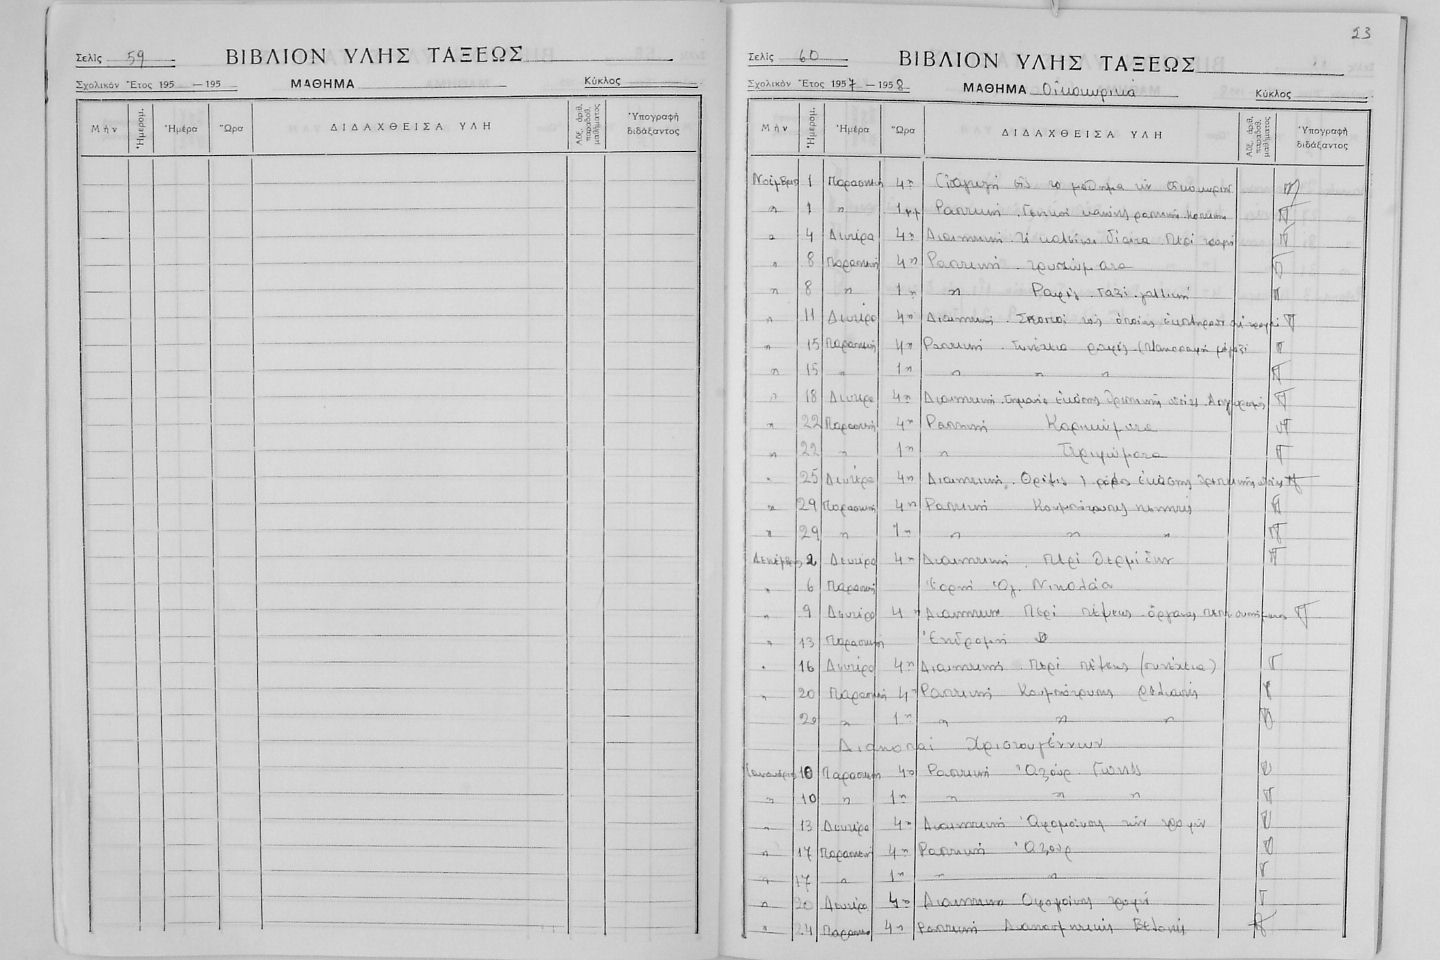 Σελὶς 59 ΒΙΒΛΙΟΝ ΥΛΗΣ ΤΑΞΕΩΣ
Σχολικὸν Ἔτος 195 — 195 ΜΑΘΗΜΑ Κύκλος
Μὴν Ἡμερομ. Ἡμέρα Ὥρα ΔΙΔΑΧΘΕΙΣΑ ΥΛΗ Αὔξ. ἀριθ. παραδοθ. μαθήματος Ὑπογραφὴ διδάξαντος
23
Σελὶς 60 ΒΙΒΛΙΟΝ ΥΛΗΣ ΤΑΞΕΩΣ
Σχολικὸν Ἔτος 1957 — 1958 ΜΑΘΗΜΑ Οἰκοκυρικά Κύκλος
Μὴν Ἡμερομ. Ἡμέρα Ὥρα ΔΙΔΑΧΘΕΙΣΑ ΥΛΗ Αὔξ. ἀριθ. παραδοθ. μαθήματος Ὑπογραφὴ διδάξαντος
Νοέμβριος 1 Παρασκευή 4η Εἰσαγωγή εἰς το μάθημα τῶν Οἰκοκυρικῶν
" 1 " 1η Ραπτική . Γενικοί κανόνες ραπτικής κοπτικής
" 4 Δευτέρα 4η Διαιτητική . Τί καλεῖται δίαιτα Περί τροφῆς
" 8 Παρασκευή 4η Ραπτική . τρυπώματα
" 8 " 1η " Ραφές . γαζί . γαλλική
" 11 Δευτέρα 4η Διαιτητική . Σκοποί τούς ὁποίους ἐκπληροῖ ἡ τροφή
" 15 Παρασκευή 4η Ραπτική . Συνέχεια ραφές
" 15 " 1η " " "
" 18 Δευτέρα 4η Διαιτητική . Σημασία ἑκάστης θρεπτικῆς οὐσίας
" 22 Παρασκευή 4η Ραπτική Καρικώματα
" 22 " 1η " Στριφώματα
" 25 Δευτέρα 4η Διαιτητική . ἑκάστης θρεπτικῆς οὐσίας
" 29 Παρασκευή 4η Ραπτική Κουμπότρυπες κεντητές
" 29 " 1η " " "
Δεκέμβριος 2 Δευτέρα 4η Διαιτητική . Περί θερμίδων
" 6 Παρασκευή Ἑορτή Ἁγ. Νικολάου
" 9 Δευτέρα 4η Διαιτητική Περί πέψεως ὄργανα πεπτ. συστήματος
" 13 Παρασκευή Ἐκδρομή
" 16 Δευτέρα 4η Διαιτητικής Περί πέψεως (συνέχεια)
" 20 Παρασκευή 4η Ραπτική Κουμπότρυπες ρελιαστές
20 " 1η " " "
Διακοπαί Χριστουγέννων
Ἰανουάριος 10 Παρασκευή 4η Ραπτική Ἀζούρ . Γωνίες
" 10 " 1η " " "
" 13 Δευτέρα 4η Διαιτητική Ἀφομοίωσις τῶν τροφῶν
" 17 Παρασκευή 4η Ραπτική Ἀζούρ
" 17 " 1η " "
" 20 Δευτέρα 4η Διαιτητική Ἀφομοίωσις τροφῶν
" 24 Παρασκευή 4η Ραπτική Διακοσμητικές Βελονιές